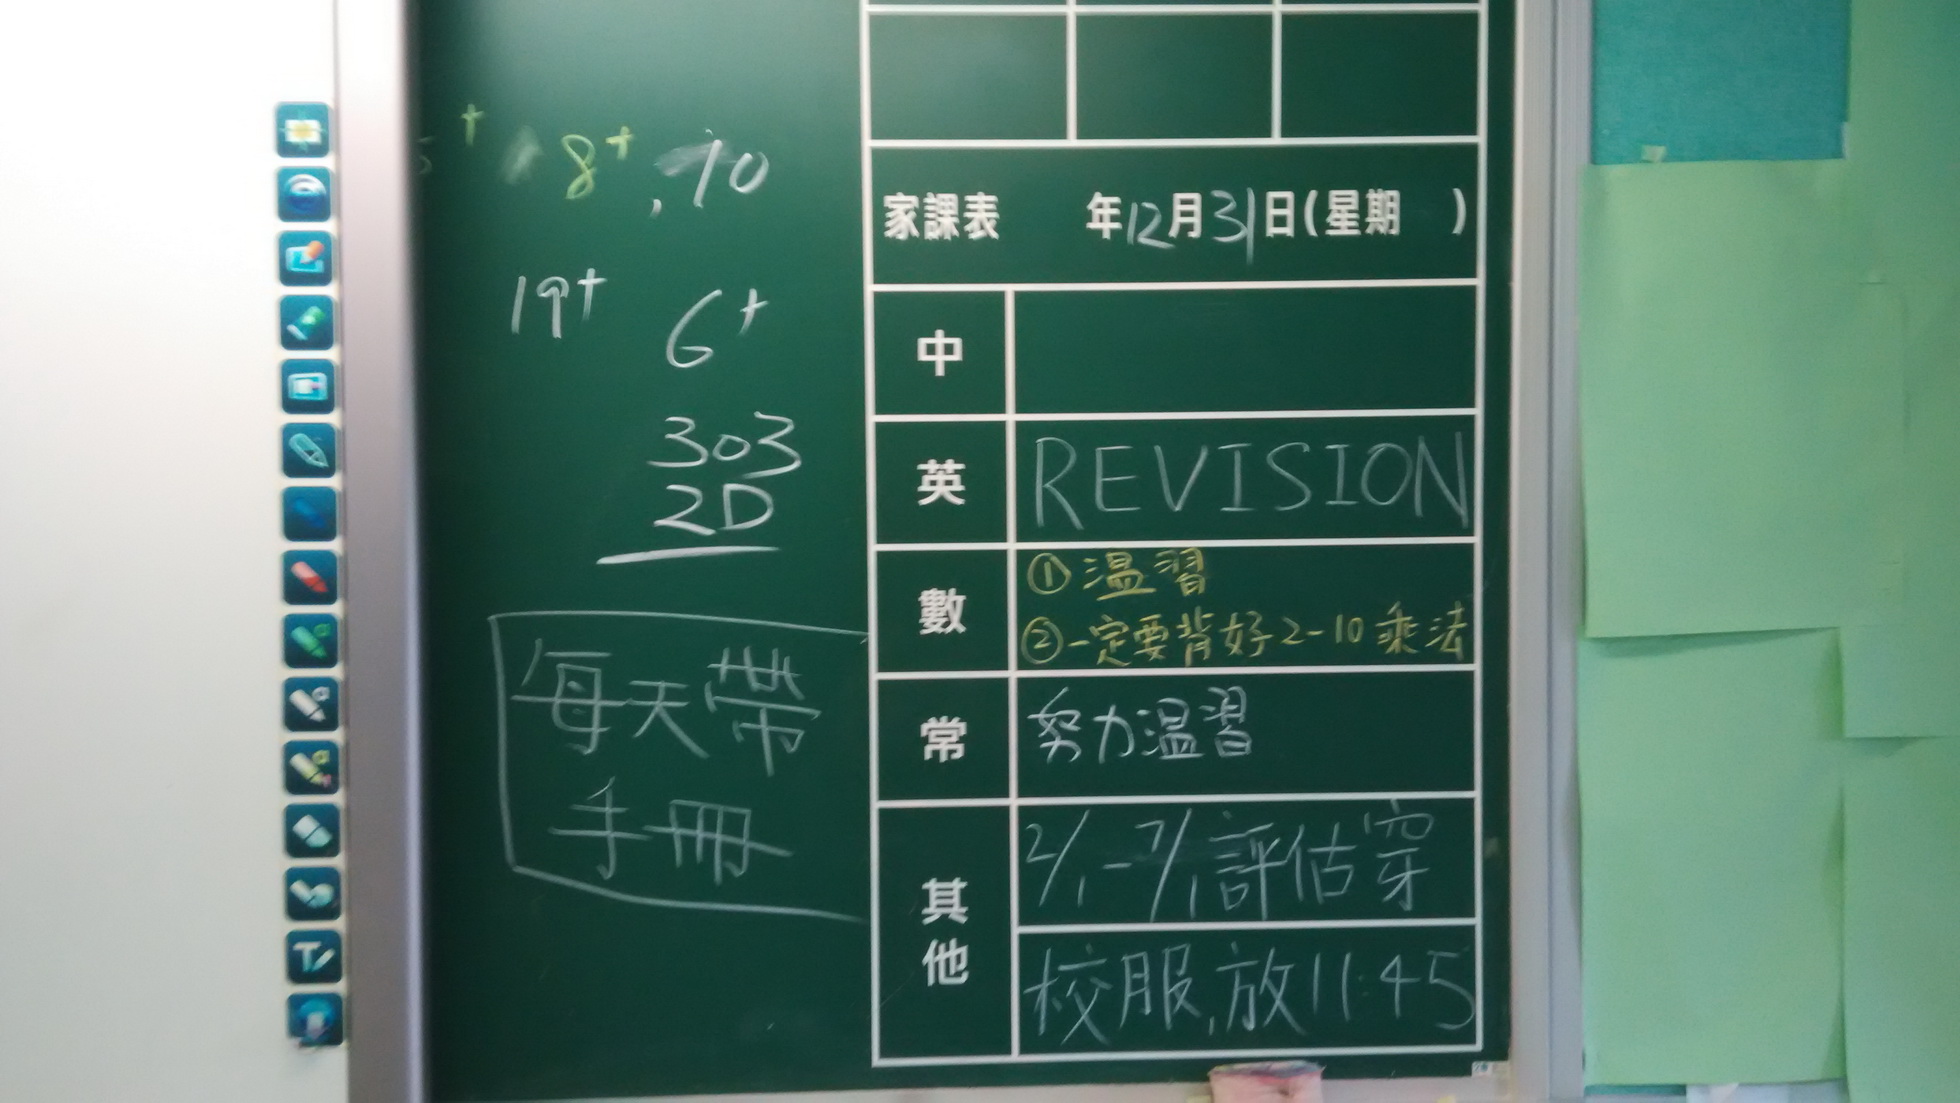 8+, 10
19+ 6+
303
2D
每天帶
手冊
家課表 年12月31日(星期 )
中
英 REVISION
數 ①溫習
②一定要背好2-10乘法
常 努力溫習
其他 2/1-7/1評估穿
校服,放11:45